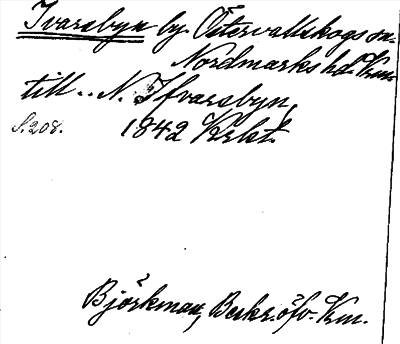 Ivarsbyn by, Östervallskogs sn.
Nordmarks hd. Krm.
till.. N. Ifvarsbyn,
S. 208. 1842 Krkt.
Björkman, Beskr. öfv. Vrm.